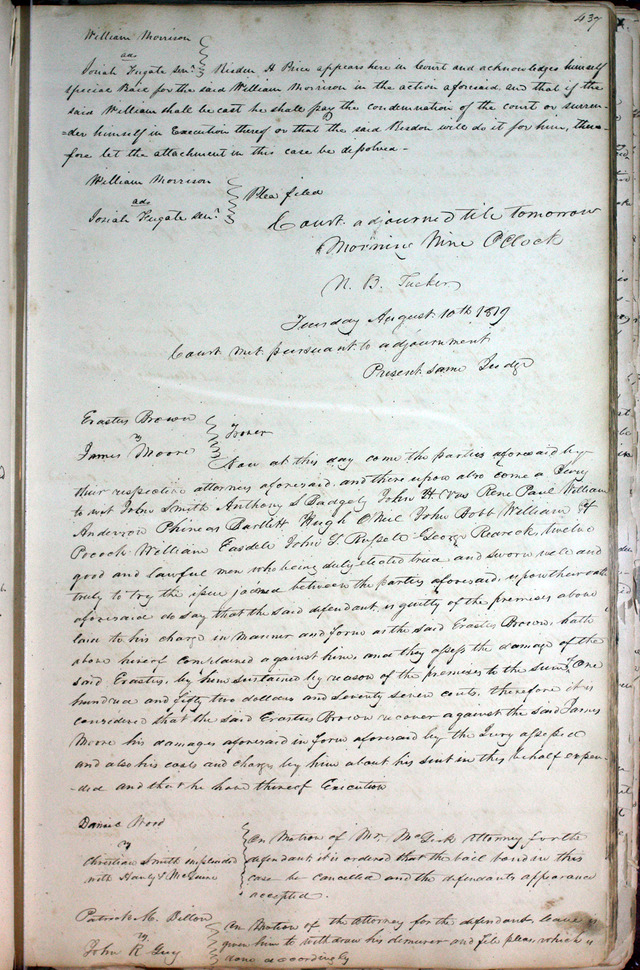 437
William Morrison
ads
Josiah Fugate senr. Risdon H Price appears here in Court and acknowledges himself
special Bail for the said William Morrison in the action aforesaid and that if the
said William shall be cast he shall pay the condemnation of the court or surren-
-der himself in Execution thereof or that the said Risdon will do it for him, there-
fore let the attachment in this case be desolved -
William Morrison
ads
Josiah Fugate senr. Plea filed
Court adjourned till tomorrow
Morning Nine OClock
N. B. Tucker
Tuesday August 10th 1819
Court met pursuant to adjournment
Present same Judge
Erastus Brown
vs
James Moore Trover
Now at this day come the parties aforesaid by
their respective attorneys aforesaid, and thereupon also come a Jury
to wit John Smith Anthony S Badgely John H Rene Paul William
Anderson Phineas Bartlett Hugh ONeil John Bobb William
Pocock William Easdell John Y. Russell George twelve
good and lawful men who being duly elected tried and sworn well and
truly to try the issue joined between the parties aforesaid, upon their oath
aforesaid do say that the said defendant is guilty of the premises above
laid to his charge in Manner and form as the said Erastus Brown hath
above hereof complained against him, and they assess the damage of the
said Erastus, by him sustained by reason of the premises to the sum of One
hundred and fifty two dollars and seventy seven cents, therefore it is
considered that the said Erastus Brown recover against the said James
Moore his damages aforesaid in form aforesaid by the Jury assessed
and also his costs and charges by him about his suit in this behalf expen-
-ded and that he have thereof Execution
Daniel Wood
vs
Christian Smith impleaded
with On Motion of Mr. Attorney for the
defendants it is ordered that the bail bond in this
case be cancelled and the defendants appearance
accepted.
Patrick M. Dillon
vs
John R Guy On Motion of the attorney for the defendant, leave is
given him to withdraw his demurer and file pleas, which is
done accordingly